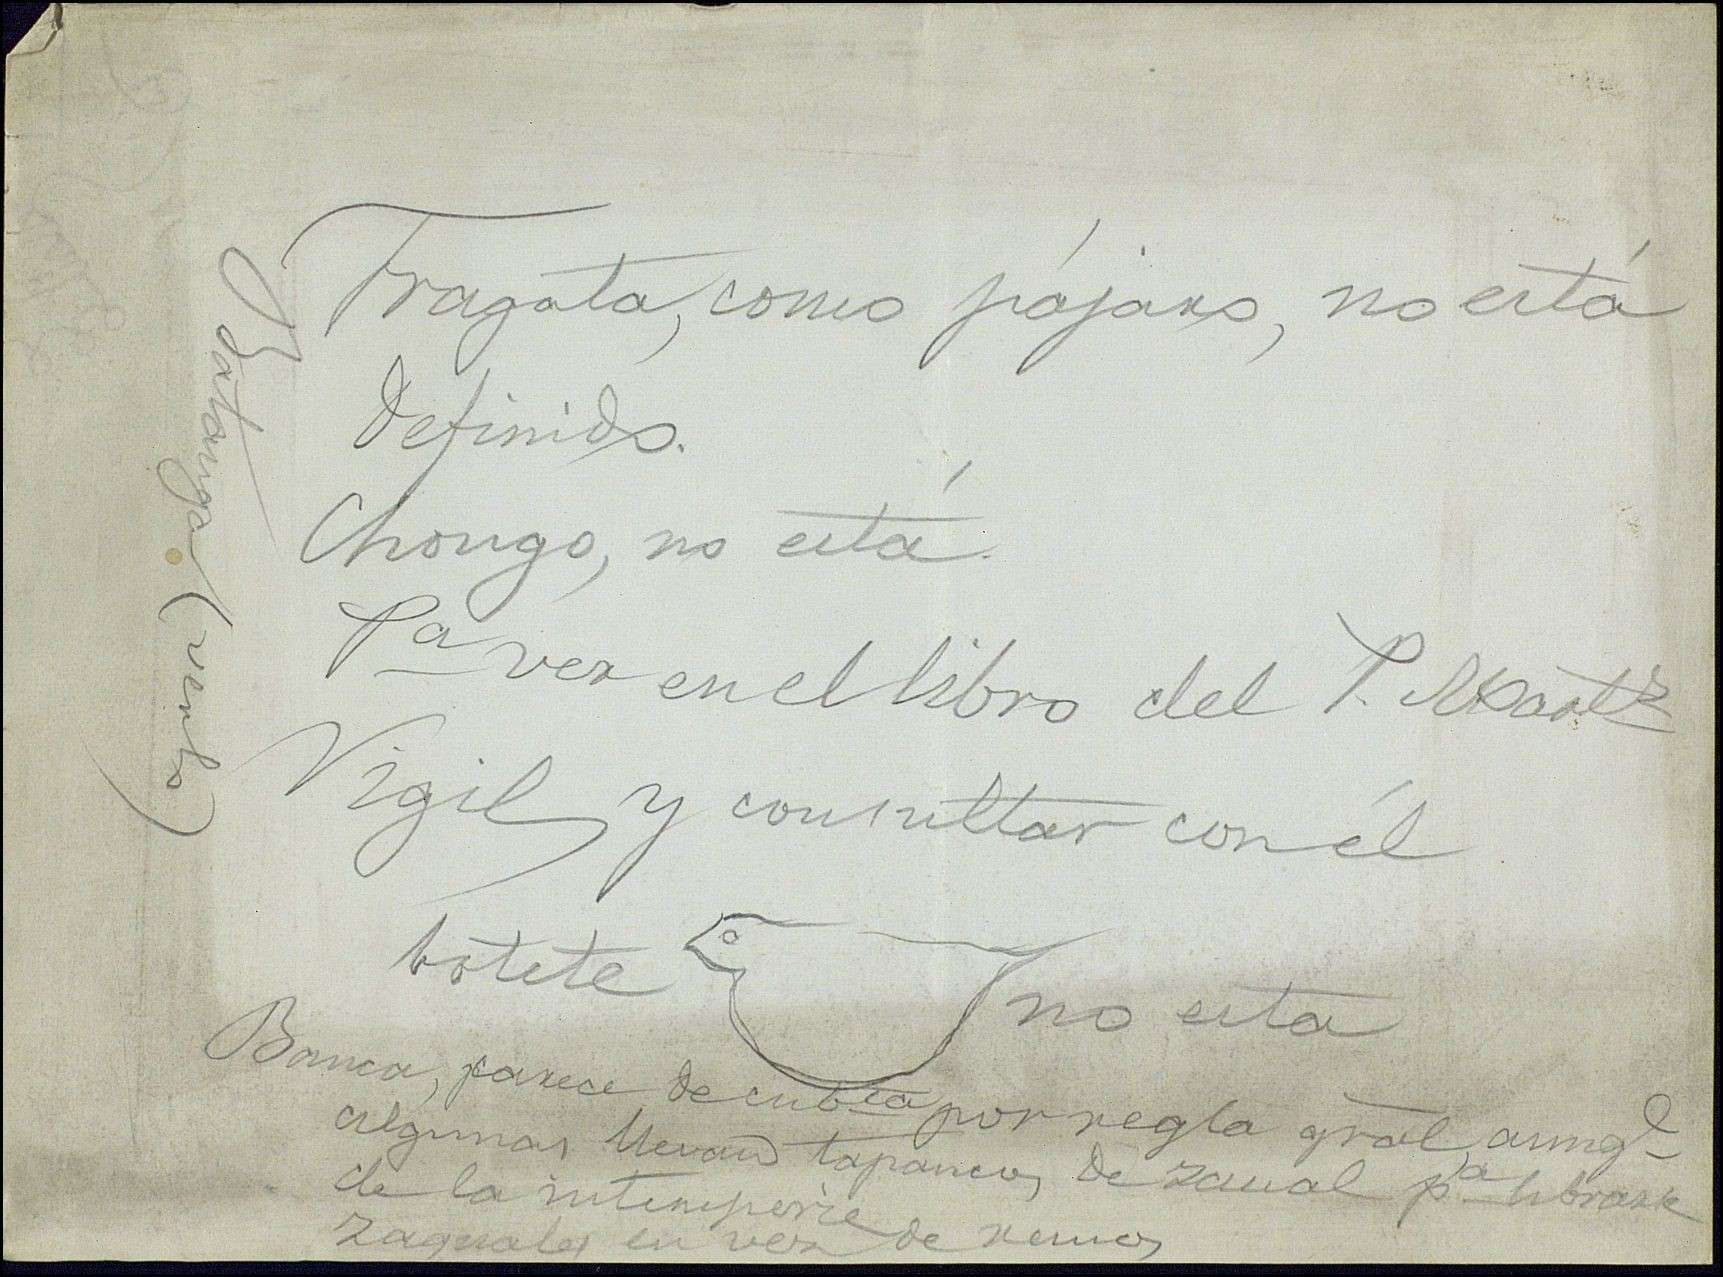 Fragata, como pájaro, no está
definido.
Chongo, no está.
Pa ver en el libro del P. Martz
Vigil y consultar con él
botete no esta
Banca, parece de cubta por regla gral, aunqe
algunas llevan tapancos de zaual pa librarse
de la intemperie
zaguales en vez de remos
Batanga (verbo)